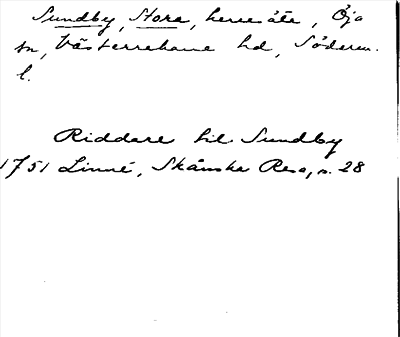 Sundby, Stora, herresäte, Öja
sn, Västerrekarne hd, Söderm.
l.
Riddare til Sundby
1751 Linné, Skånska Resa, s. 28